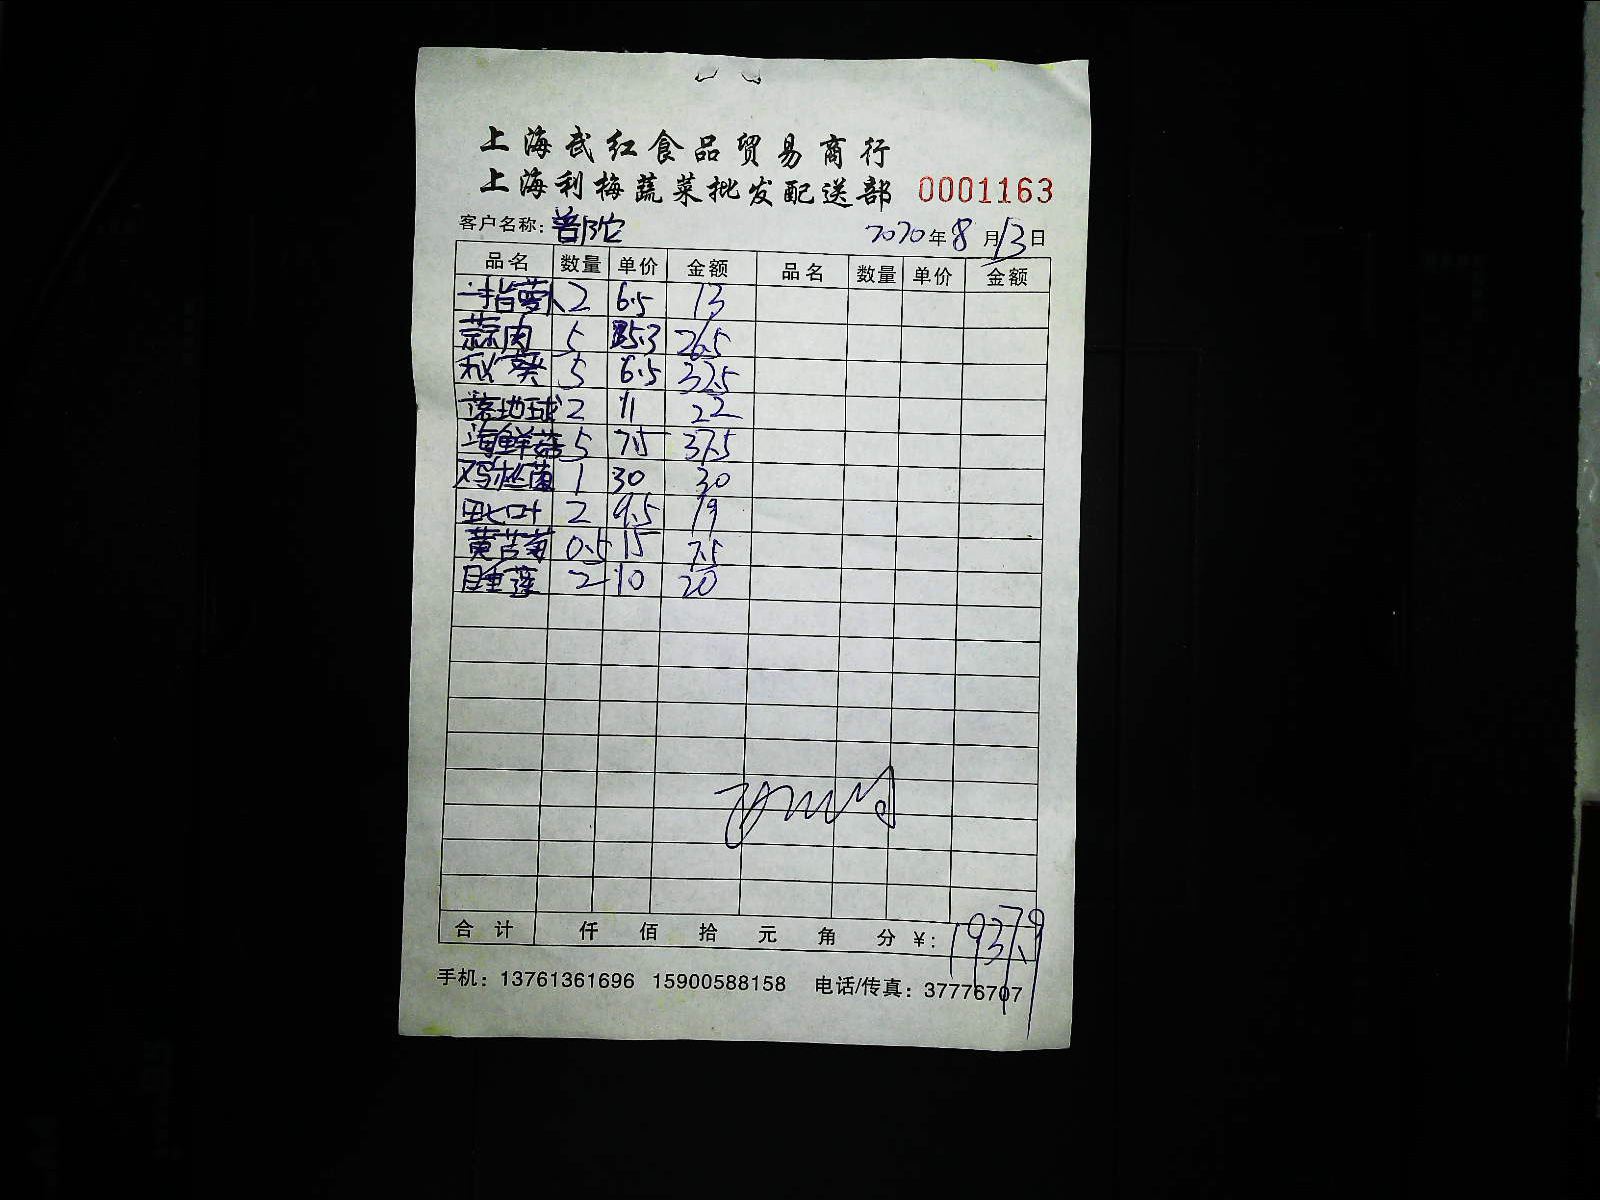 上海武红食品贸易商行
上海利梅蔬菜批发配送部 0001163
客户名称: 普陀 2020年8月13日
品名 数量 单价 金额 品名 数量 单价 金额
一指萝卜 2 6.5 13
蒜肉 5 5.3 26.5
秋葵 5 6.5 32.5
落地球 2 11 22
海鲜菇 5 7.5 37.5
鸡枞菌 1 30 30
2 9.5 19
黄苦菊 0.5 15 7.5
睡莲 2 10 20
合计 仟 佰 拾 元 角 分 ¥:
手机: 13761361696 15900588158 电话/传真: 37776707